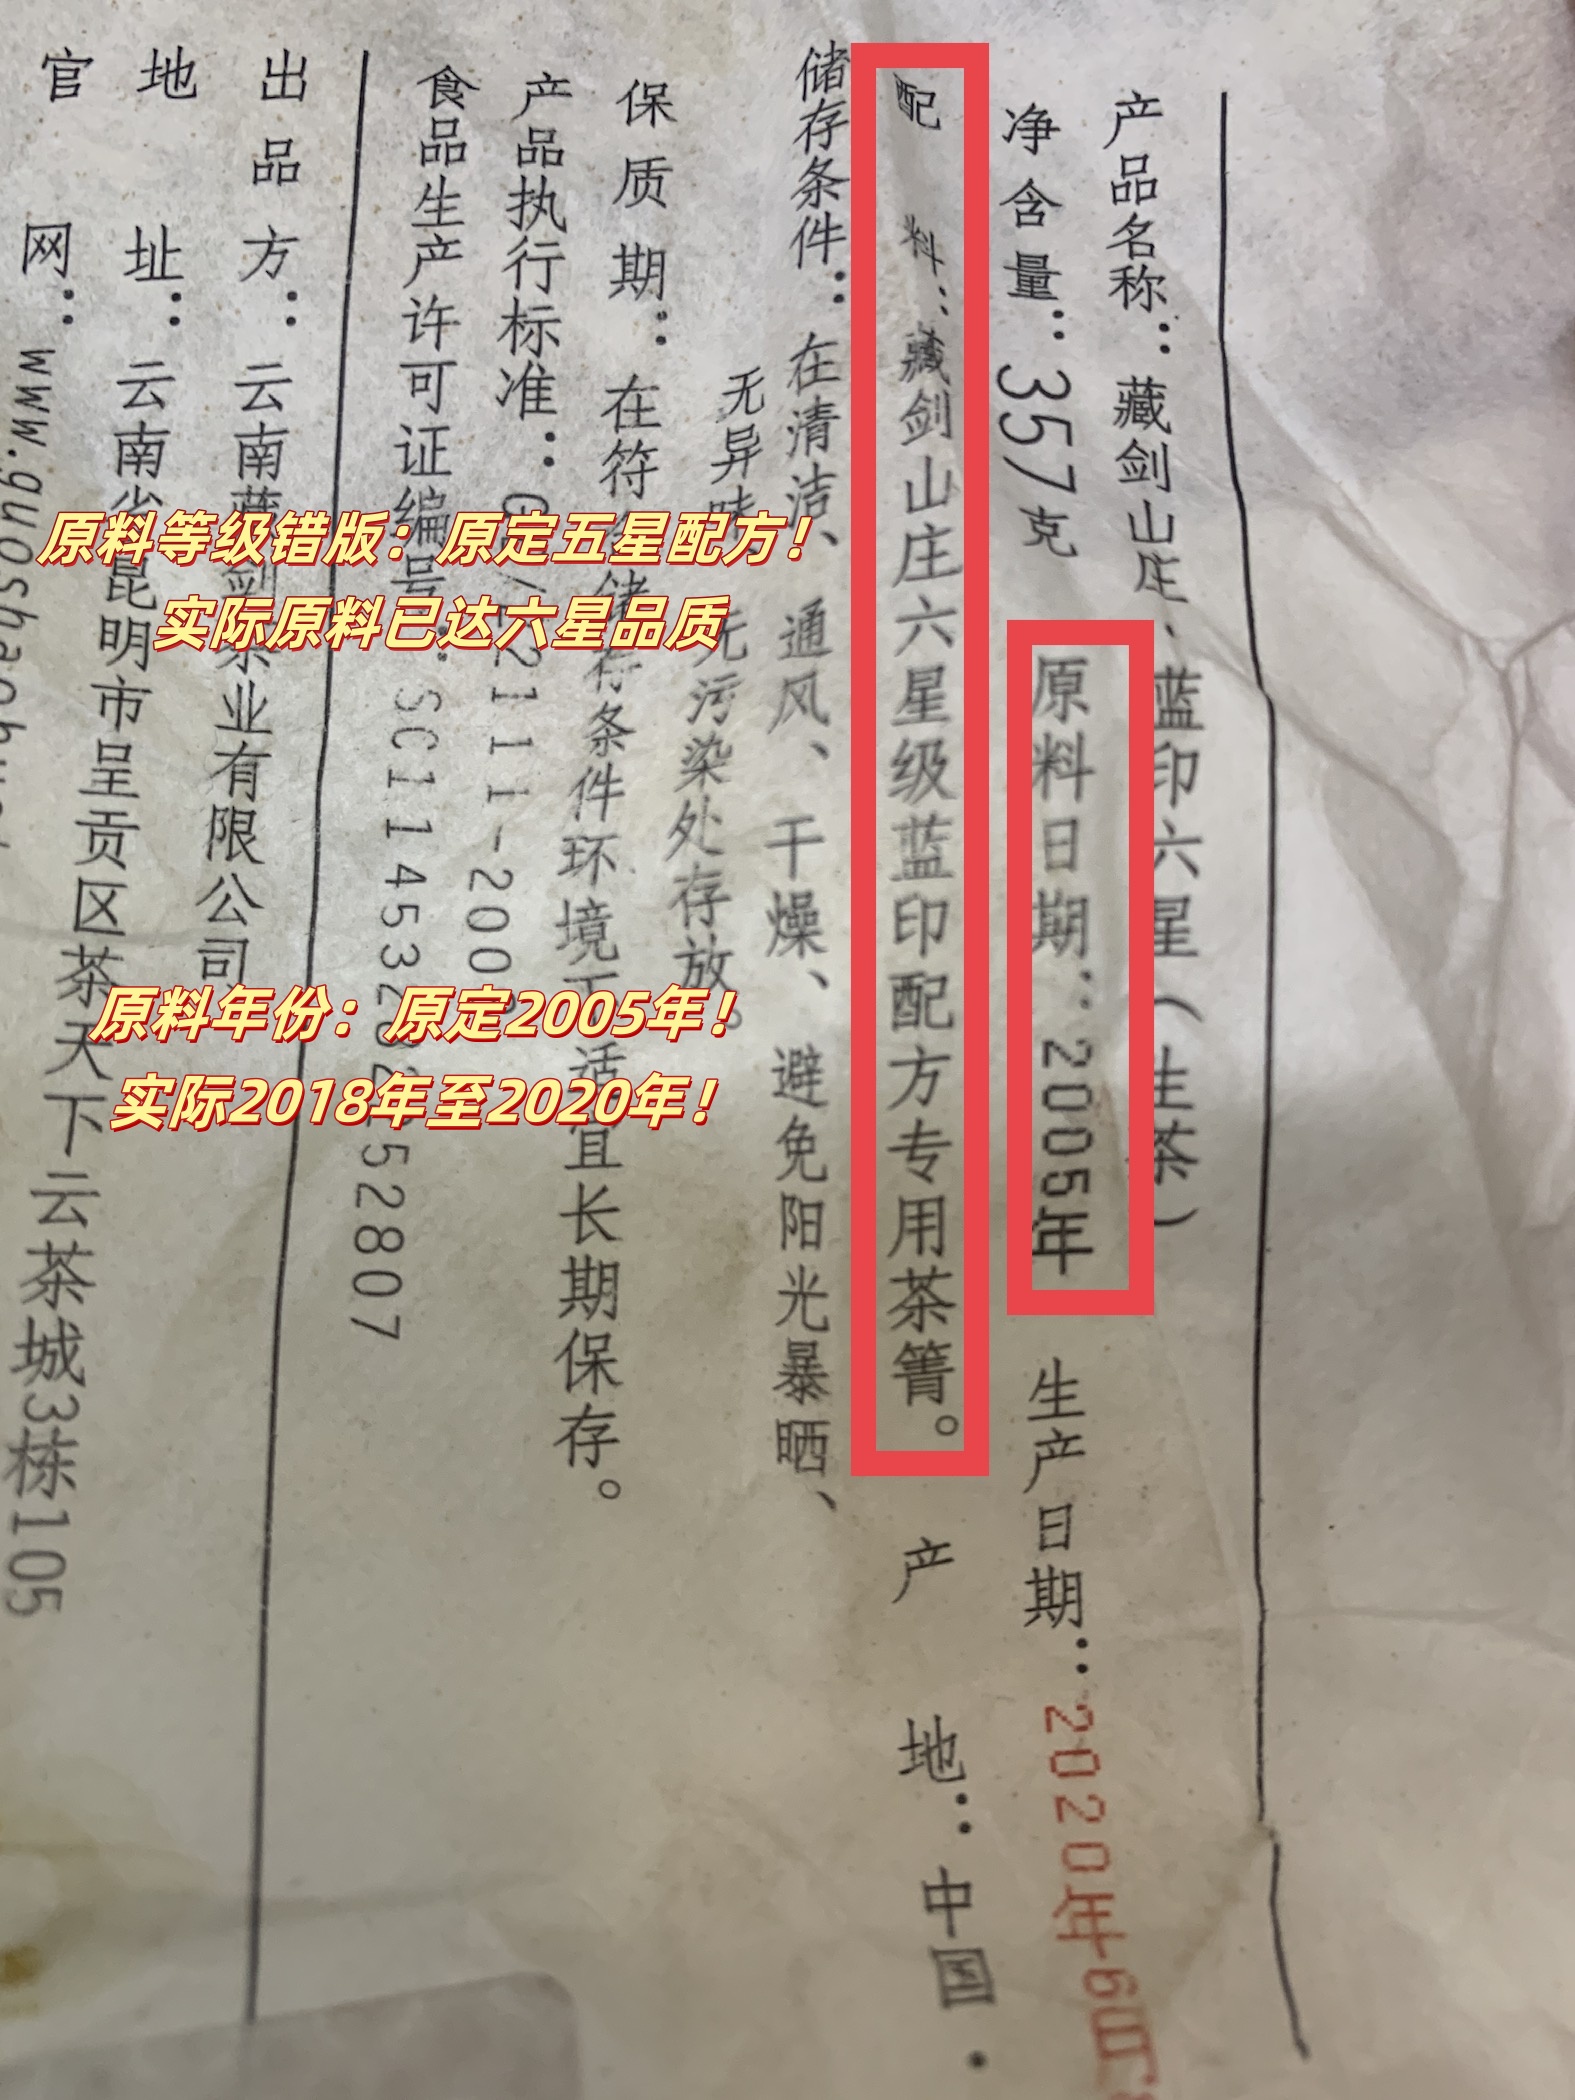 产品名称：藏剑山庄·蓝印六星（生茶）
净含量：357克 原料日期：2005年 生产日期：2020年6月
配料：藏剑山庄六星级蓝印配方专用茶箐。 产地：中国·
储存条件：在清洁、通风、干燥、避免阳光暴晒、
无异味、无污染处存放。
保质期：在符 储存条件环境下适宜长期保存。
产品执行标准： 22111-200
食品生产许可证编号：SC11453 52807
出品方：云南藏剑 茶业有限公司
地址：云南省昆明市呈贡区茶天下云茶城3栋105
官网：www.guoshaoh
原料等级错版：原定五星配方！
实际原料已达六星品质
原料年份：原定2005年！
实际2018年至2020年！